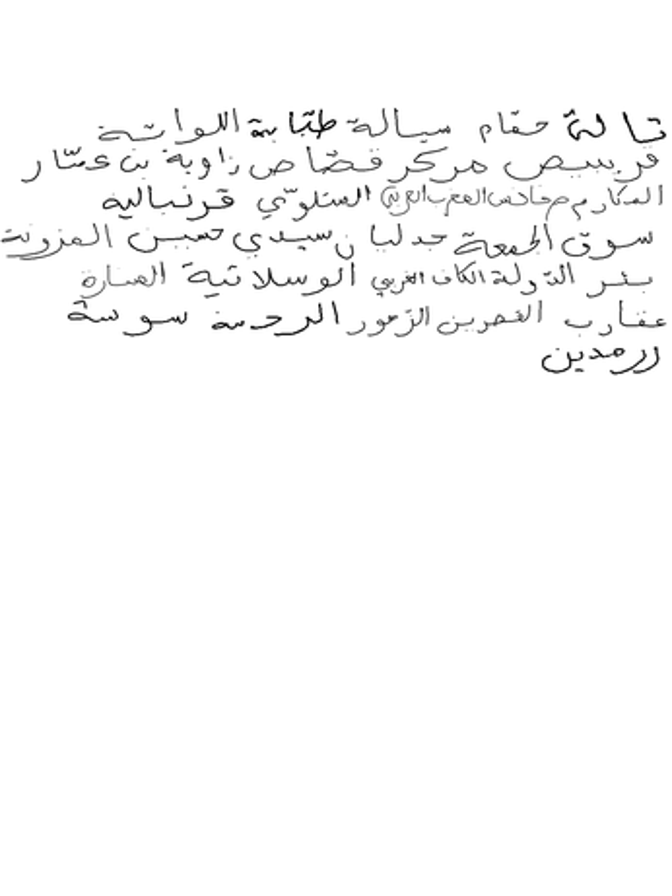 تالة حمّام سيالة طبّابة اللواتة
قربيص مركز قصّاص زاوية بن عمّار
المكارم صفاقس المغرب العربي المتلوّي قرنبالية
سوق الجمعة جدليان سيدي حسين المزونة
بئر الدّولة الكاف الغربي الوسلاتية المنارة
عقارب القصرين الزّهور الرحمة سوسة
زرمدين